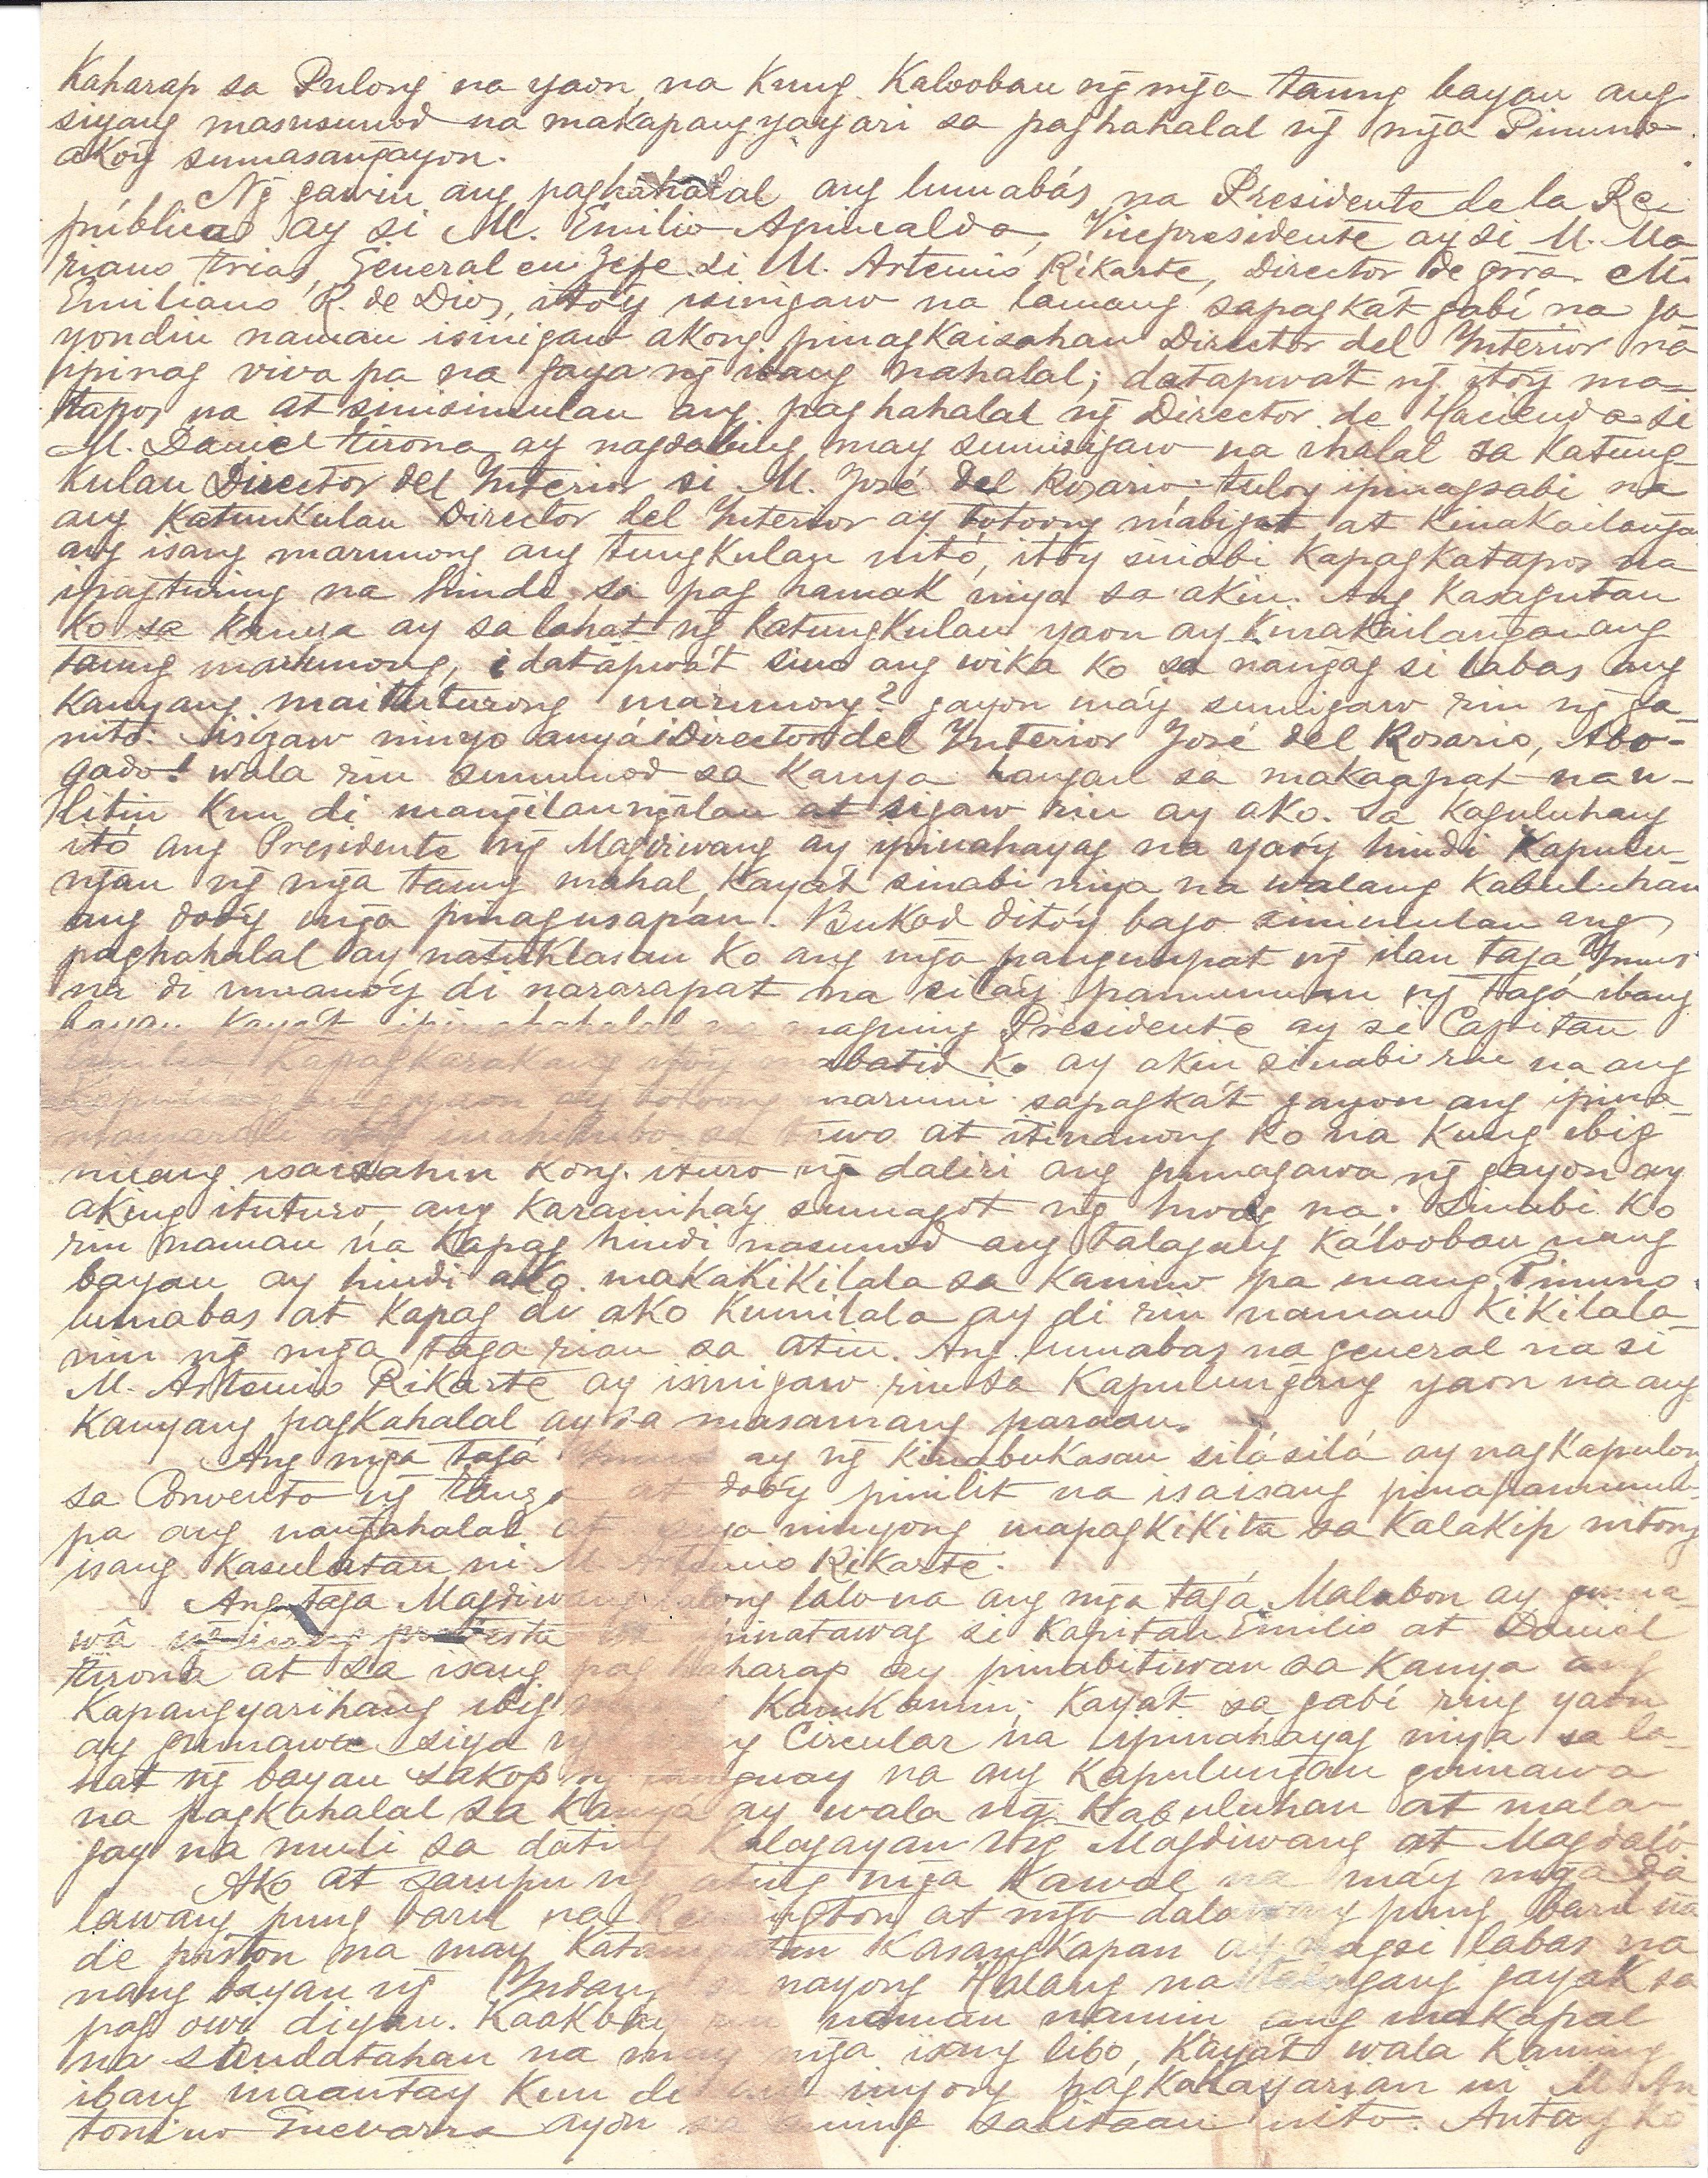 Kaharap sa Pulong na yaon, na kung Kalooban ng̃ mg̃a taung bayan ang
siyang masusunod na makapangyayari sa paghahalal ng̃ mg̃a Pinuno
ako'y sumasang̃ayon.
Ng̃ gawin ang paghahalal ang lumabás na Presidente de la Re-
pública ay si M. Emilio Aguinaldo, Vicepresidente ay si M. Ma
riano Trias, General en Jefe si M. Artemio Rikarte, Director de grra. M.
Emiliano R. de Dios, ito'y isinigaw na lamang sapagka't gabí na ga
yondin naman isinigaw akong pinagkaisahan Director del Ynterior na
ipinag viva pa na gaya ng̃ ibang nahalal; datapwa't ng̃ ito'y ma-
tapos na at sinisimulan ang paghahalal ng̃ Director de Hacienda si
M. Daniel tirona ay nagsabing may sumisigaw na ihalal sa Katung-
kulan Director del Ynterior si M. José del Rosario; tuloy ipinagsabi na
ang Katunkulan Director del Ynterior ay totoong mabigat at Kinakailang̃a
ang isang marunong ang tungkulan nitó, ito'y sinabi Kapagkatapos na
ipagturing na hindi sa pag hamak niya sa akin. Ang Kasagutan
ko sa kanya ay sa lahat ng̃ katungkulan yaon ay kinakailang̃an ang
taung marunong, datapwa't sino ang wika ko sa nang̃ag si labas ang
kanyang maituturong marunong? gayon ma'y sumigaw rin ng̃ ga-
nitó: isigaw ninyo anyá ¡Director del Ynterior José del Rosario, Abo-
gado! wala rin sumunod sa kanya hangan sa makaapat na u-
litin kun di mang̃ilanng̃ilan at sigaw rin ay ako. Sa kaguluhang
itó ang Presidente ng̃ Magdiwang ay ipinahayag na yao'y hindi Kapulu-
ng̃an ng̃ mg̃a taung mahal, kaya't sinabi niya na walang kabuluhan
ang doo'y mg̃a pinagusapan. Bukod dito'y bago sinimulan ang
paghahalal ay natuklasan ko ang mg̃a pang̃ung̃upat ng̃ ilan taga Ymus
na di umano'y di nararapat na sila'y pamunuan ng̃ tagá ibang
bayan kaya't ipinahahalal na maguing Presidente ay si Capitan
Kapagkarakang ito'y mabatid ko ay akin sinabi rin na ang
Kapulung̃ang yaon ay totoong marumi sapagka't gayon ang ipina-
mamarali at sa tawo at itinanong ko na kung ibig
nilang isaisahin kong ituro ng̃ daliri ang gumagawa ng̃ gayon ay
aking ituturo, ang karamiha'y sumagot ng̃ hwag na. Sinabi ko
rin naman na kapag hindi nasunod ang talagang kalooban nang
bayan ay hindi ako makakikilala sa kanino pa mang Pinuno
lumabas at kapag di ako kumilala ay di rin naman kikilala-
nin ng̃ mg̃a taga rian sa atin. Ang lumabas na general na si
M. Artemio Rikarte ay isinigaw rin sa Kapulung̃ang yaon na ang
kanyang pagkahalal ay sa masamang paraan.
Ang mg̃a tagá Ymus ay ng̃ kinabukasan silá silá ay nagkapulong
sa Convento ng̃ Tanza at doo'y pinilit na isaisang pinapanunum-
pa ang nang̃ahalal at siya ninyong mapagkikita sa kalakip nitong
isang kasulatan ni M. Artemio Rikarte.
Ang taga Magdiwang lalong lalo na ang mg̃a tagá Malabon ay guma-
wâ ng̃ isang protesta at pinatawag si Kapitan Emilio at Daniel
tirona at sa isang pag haharap ay pinabitiwan sa kanya ang
kapangyarihang ibig kamkamin; kaya't sa gabí ring yaon
ay gumawa siya ng̃ isang Circular na ipinahayag niya sa la-
hat ng̃ bayan sakop ng̃ na ang Kapulung̃an guinawa
na pagkahalal sa kanyá ay wala ng̃ kabuluhan at mala-
gay na muli sa dating kalagayan ng̃ Magdiwang at Magdaló
Ako at sampu ng̃ ating mg̃a kawal na may mg̃a da
lawang pung baril na Remington at mg̃a dalawang pung baril na
de piston na may katamtaman kasangkapan ay nagsi labas na
nang bayan ng̃ Yndang sa nayong Halang na talagang gayak sa
pag owi diyan. Kaakbay rin naman namin ang makapal
na sandatahan na may mg̃a isang libo, kaya't wala kaming
ibang inaantay kun di ang inyong pagkakayarian ni M. An
tonino Guevarra ayon sa aming salitaan nito. Antay ko